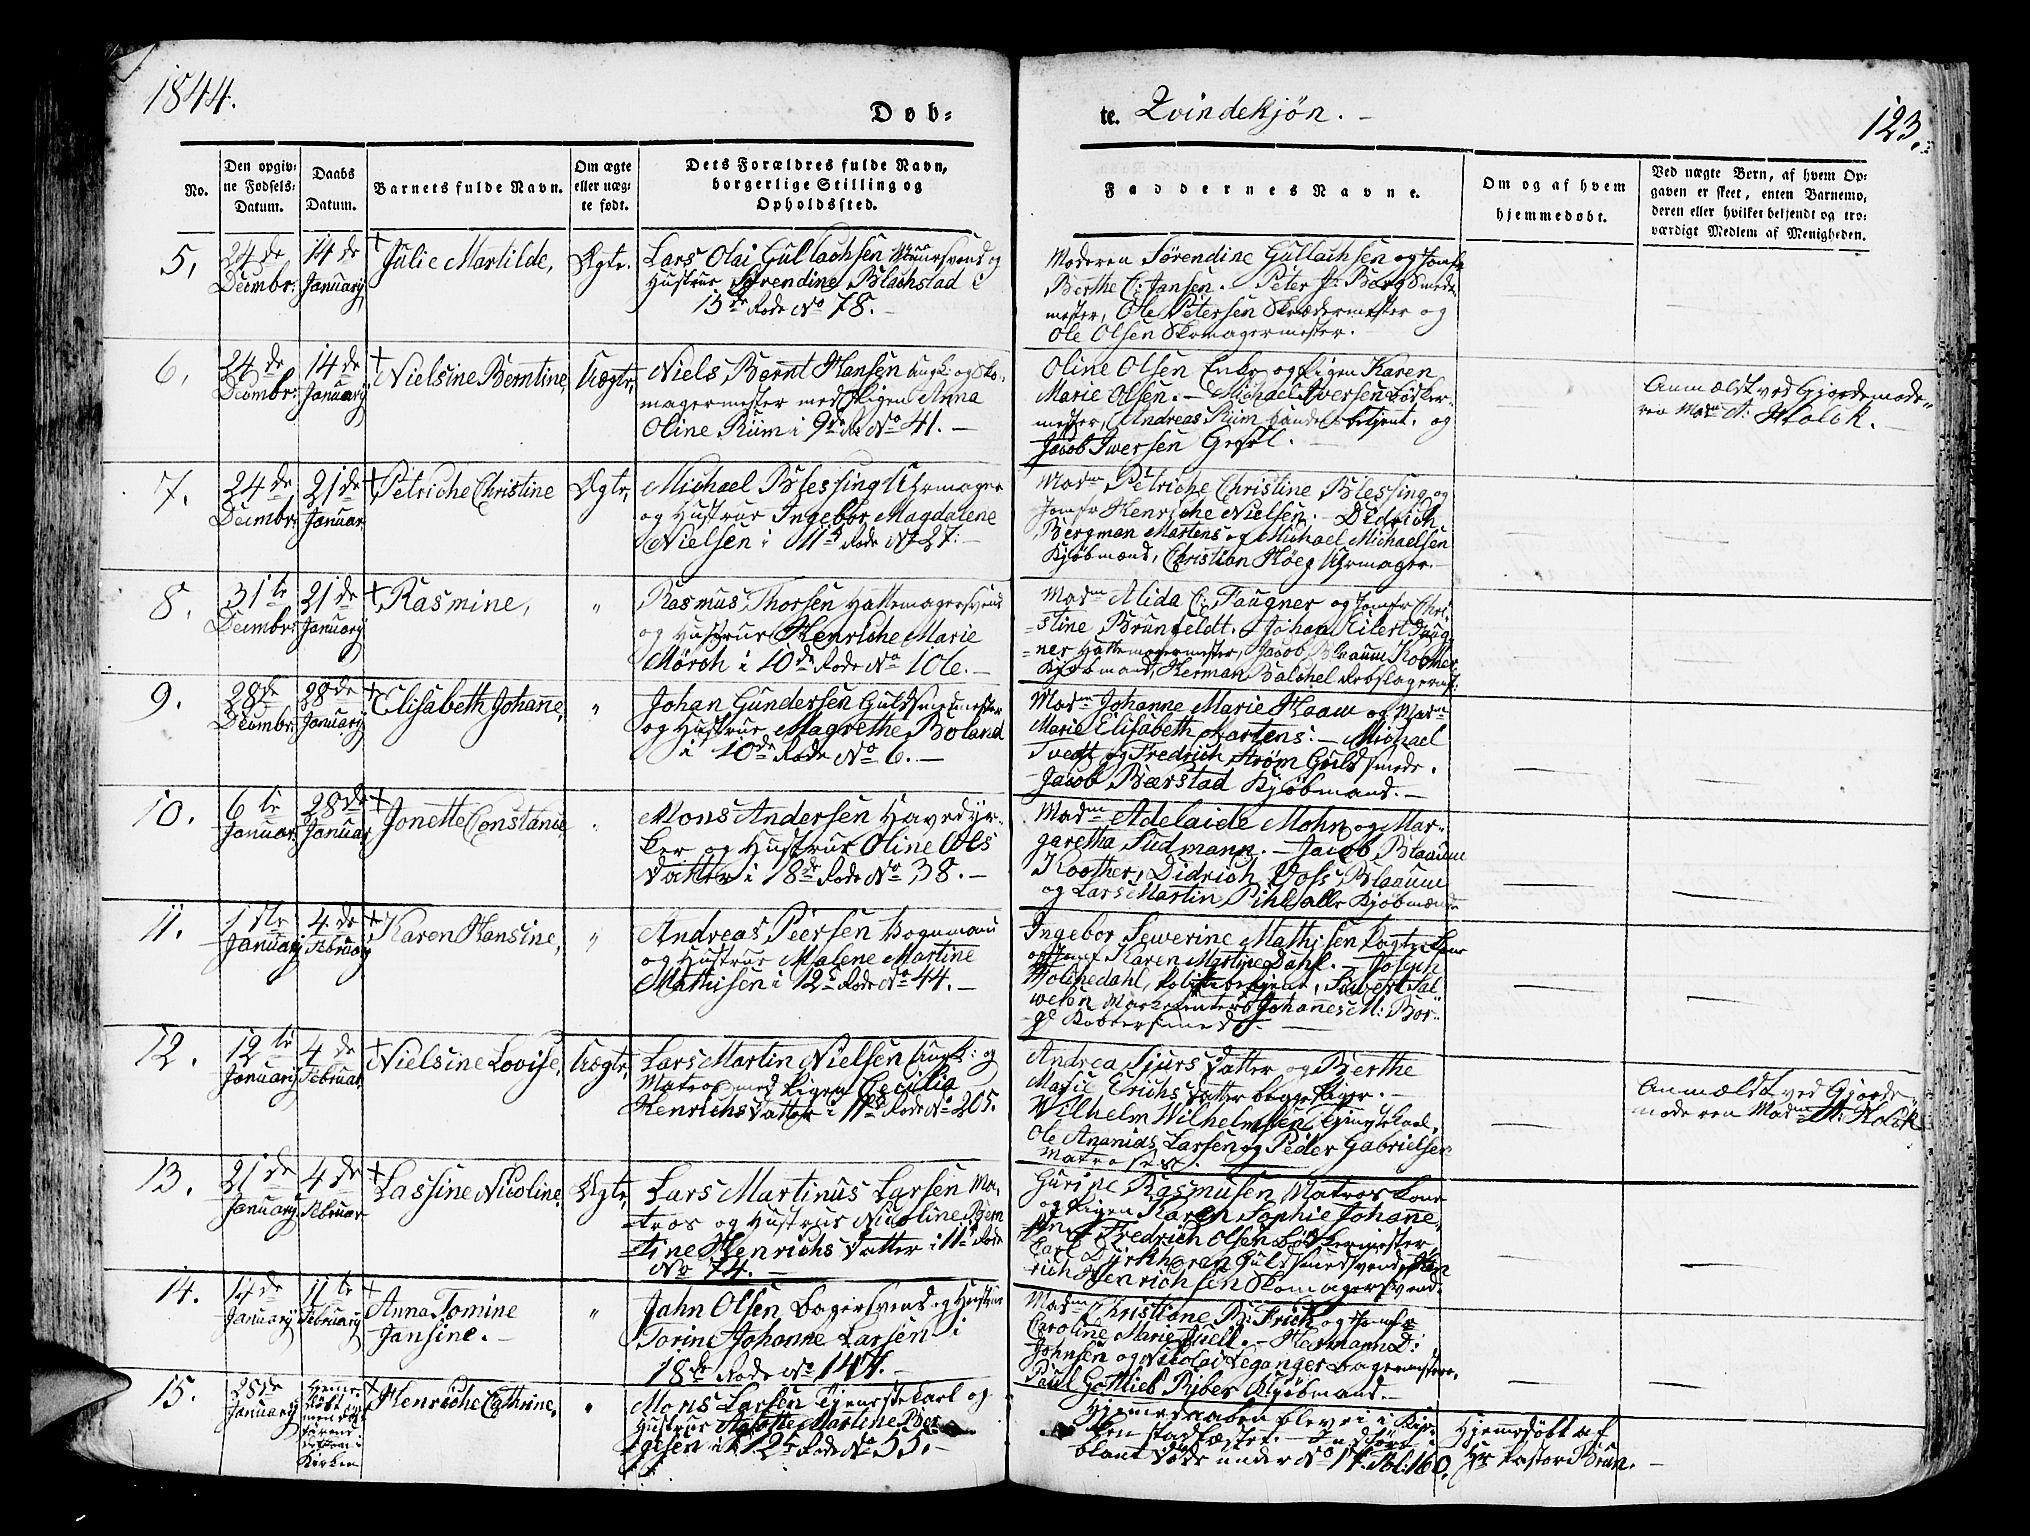 1844.
Døb-
te. Qvindekjøn.
123.
No.
Den opgiv-
ne Fødsels-
Datum.
Daabs
Datum.
Barnets fulde Navn.
Om ægte
eller uæg-
te født.
Dets Forældres fulde Navn,
borgerlige Stilling og
Opholdssted.
Faddernes Navne.
Om og af hvem
hjemmedøbt.
Ved uægte Børn, af hvem Op-
gaven er skeet, enten Barnemo-
deren eller hvilket bekjendt og tro-
værdigt Medlem af Menigheden.
5,
24de
Decembr:
14de
January
Julie Martilde,
Ægte.
Lars Olai Gullachsen Muursvend og
Hustrue Sørendine Blachstad i
13de Rode No 78.
Moderen Sørendine Gullachsen og Jomfr
Berthe C: Jansen. Peter J: Berg Smede
mester, Ole Petersen Skrædermester og
Ole Olsen Skomagermester.
6,
24de
Decembr:
14de
January
Nielsine Berntine,
Uægte,
Niels Bernt Hansen Ungk: og Sko-
magermester med Pigen Anna
Oline Rüm i 9de Rode No 41.
Oline Olsen Enke og Pigen Karen
Marie Olsen. Michael Iversen Bødker-
mester, Andreas Rüm Handelsbetjent. og
Jacob Iversen Gesel.
Anmældt ved Gjordemode-
ren Madm A: Holck.
7.
24de
Decembr:
21de
Januar
Petriche Christine
Ægte,
Michael Blessing Uhrmager
og Hustrue Ingebor Magdalene
Nielsen i 11te Rode No 27.
Madm Petriche Christine Blessing og
Jomfr Henriche Nielsen. Didrich
Bergman Martens og Michael Michaelsen
Kjøbmænd, Christian Høeg Uhrmager.
8.
31te
Decembr:
21de
January
Rasmine,
"
Rasmus Thorsen Hattemagersvend
og Hustrue Henriche Marie
Mørch i 10de Rode No 106.
Madm Alida C: Faugner og Jomfr Chri-
stine Brunfeldt. Johan Eilert Faug-
ner Hattemagermester, Jacob Blaauw Koother
Kjøbmand, Herman Balchel Rebslagersv:
9.
28de
Decembr:
28de
January
Elisabeth Johanne,
"
Johan Gundersen Guldsmedmester
og Hustrue Magrethe Boland
i 10de Rode No 6.
Madm Johanne Marie Haaw og Madm
Marie Elisabeth Martens. Michael
Tvedt og Fredrich Strøm Guldsmede.
Jacob Bærstad Kjøbmand.
10.
6te
Januar
28de
Januar
Jonette Constance
"
Mons Andersen Havedyr-
ker og Hustrue Oline Ols
Datter i 18de Rode No 38.
Madm Adelaide Mohn og Mar-
garetha Sudmann. Jacob Blaauw
Koother, Didrich Voss Blaauw
og Lars Martin Pihl alle Kjøbmænd
11.
1ste
January
4de
February
Karen Hansine,
"
Andreas Peersen Vognmand
og Hustrue Malene Martine
Mathisen i 12te Rode No 44.
Ingebor Sewerine Mathisen Kone
og Jomf Karen Martine Dahl. Joseph
Holchedahl, Politiebetjent, Siwert Sal-
wesen Marketenter og Johannes M: Bor-
ge Kobbersmed.
12.
12te
January
4de
Februar
Nielsine Lovise,
Uægte,
Lars Martin Nielsen Ungk: og
Matros med Pigen Cecilia
Henrichs Datter i 11te Rode No 205.
Andrea Sjurs Datter og Berthe
Marie Erichs Datter begge Piger.
Wilhelm Wilhelmsen Tjenstekarl,
Ole Ananias Larsen og Peder Gabrielsen
Matroser.
Anmældt ved Gjorde-
moderen Madm A: Holck
13.
21de
January
4de
Februar
Lassine Nicoline,
Ægte,
Lars Martinus Larsen Ma-
tros og Hustrue Nicoline Bern
tine Henrichs Datter i 11te Rode
No 74.
Gurine Rasmusen Matros Kone
og Pigen Karen Sophie Johanne-
sen. Fredrich Olsen Bødkermester
Carl Dyrkhoren Guldsmedsvend, Hen
rich Henrichsen Skomagersvend.
14.
14de
January
11te
February
Anna Tomine
Jansine.
"
Jahn Olsen Bagersvend og Hustrue
Torine Johanne Larsen i
18de Rode No 147.
Madm Christiane B: Frich og Jomfr
Caroline Marie Juell. Hermann D:
Johnsen og Nikolai Leganger Bagermestere,
Paul Gottlieb Riber Kjøbmand.
15.
28de
January
Hjemme
døbt
Kirken
Henriche Cathrine,
"
Mons Larsen Tjenestekarl og
Hustrue Martine Ber
gesen i 12te Rode No 55.
Hjemmedaaben blev ei i Kir-
ken stadfæstet. Indført i
blant Døde under No 17. Fol: 160.
Hjemedøbt af
Hr Pastor Brun.